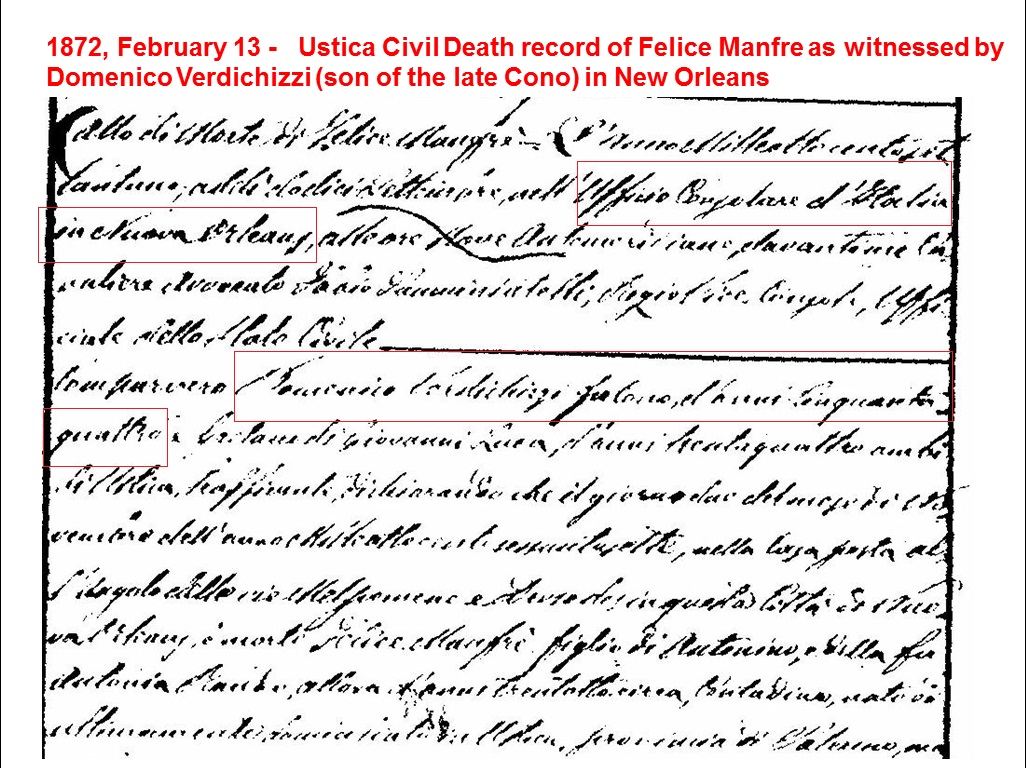 1872, February 13 - Ustica Civil Death record of Felice Manfre as witnessed by
Domenico Verdichizzi (son of the late Cono) in New Orleans
Atto di Morte di Felice Manfrè = L'Anno Milleottocentoset
tantuno, addì dodici Settembre, nell'Ufficio Consolare d'Italia
in Nuova Orleans, alle ore Nove Antimeridiane davanti me Ca
valiere Avvocato Regio Vice Console, Uffi
ciale dello Stato Civile
Comparvero Domenico Verdichizzi fu Cono, d'anni Cinquanta
quattro e Gaetano di Giovanni Luca, d'anni trentaquattro ambi
di Ustica, trafficanti, dichiarando che il giorno due del mese di No
vembre dell'anno Milleottocento sessantasette, nella Casa posta al
l'Angolo delle vie Melpomene e in questa Città di Nuo
va Orleans, è morto Felice Manfrè figlio di Antonino, e della fu
Antonia allora d'anni trentotto circa, Contadino, nato ed
ultimamente domiciliato in Ustica, provincia di Palermo, ma